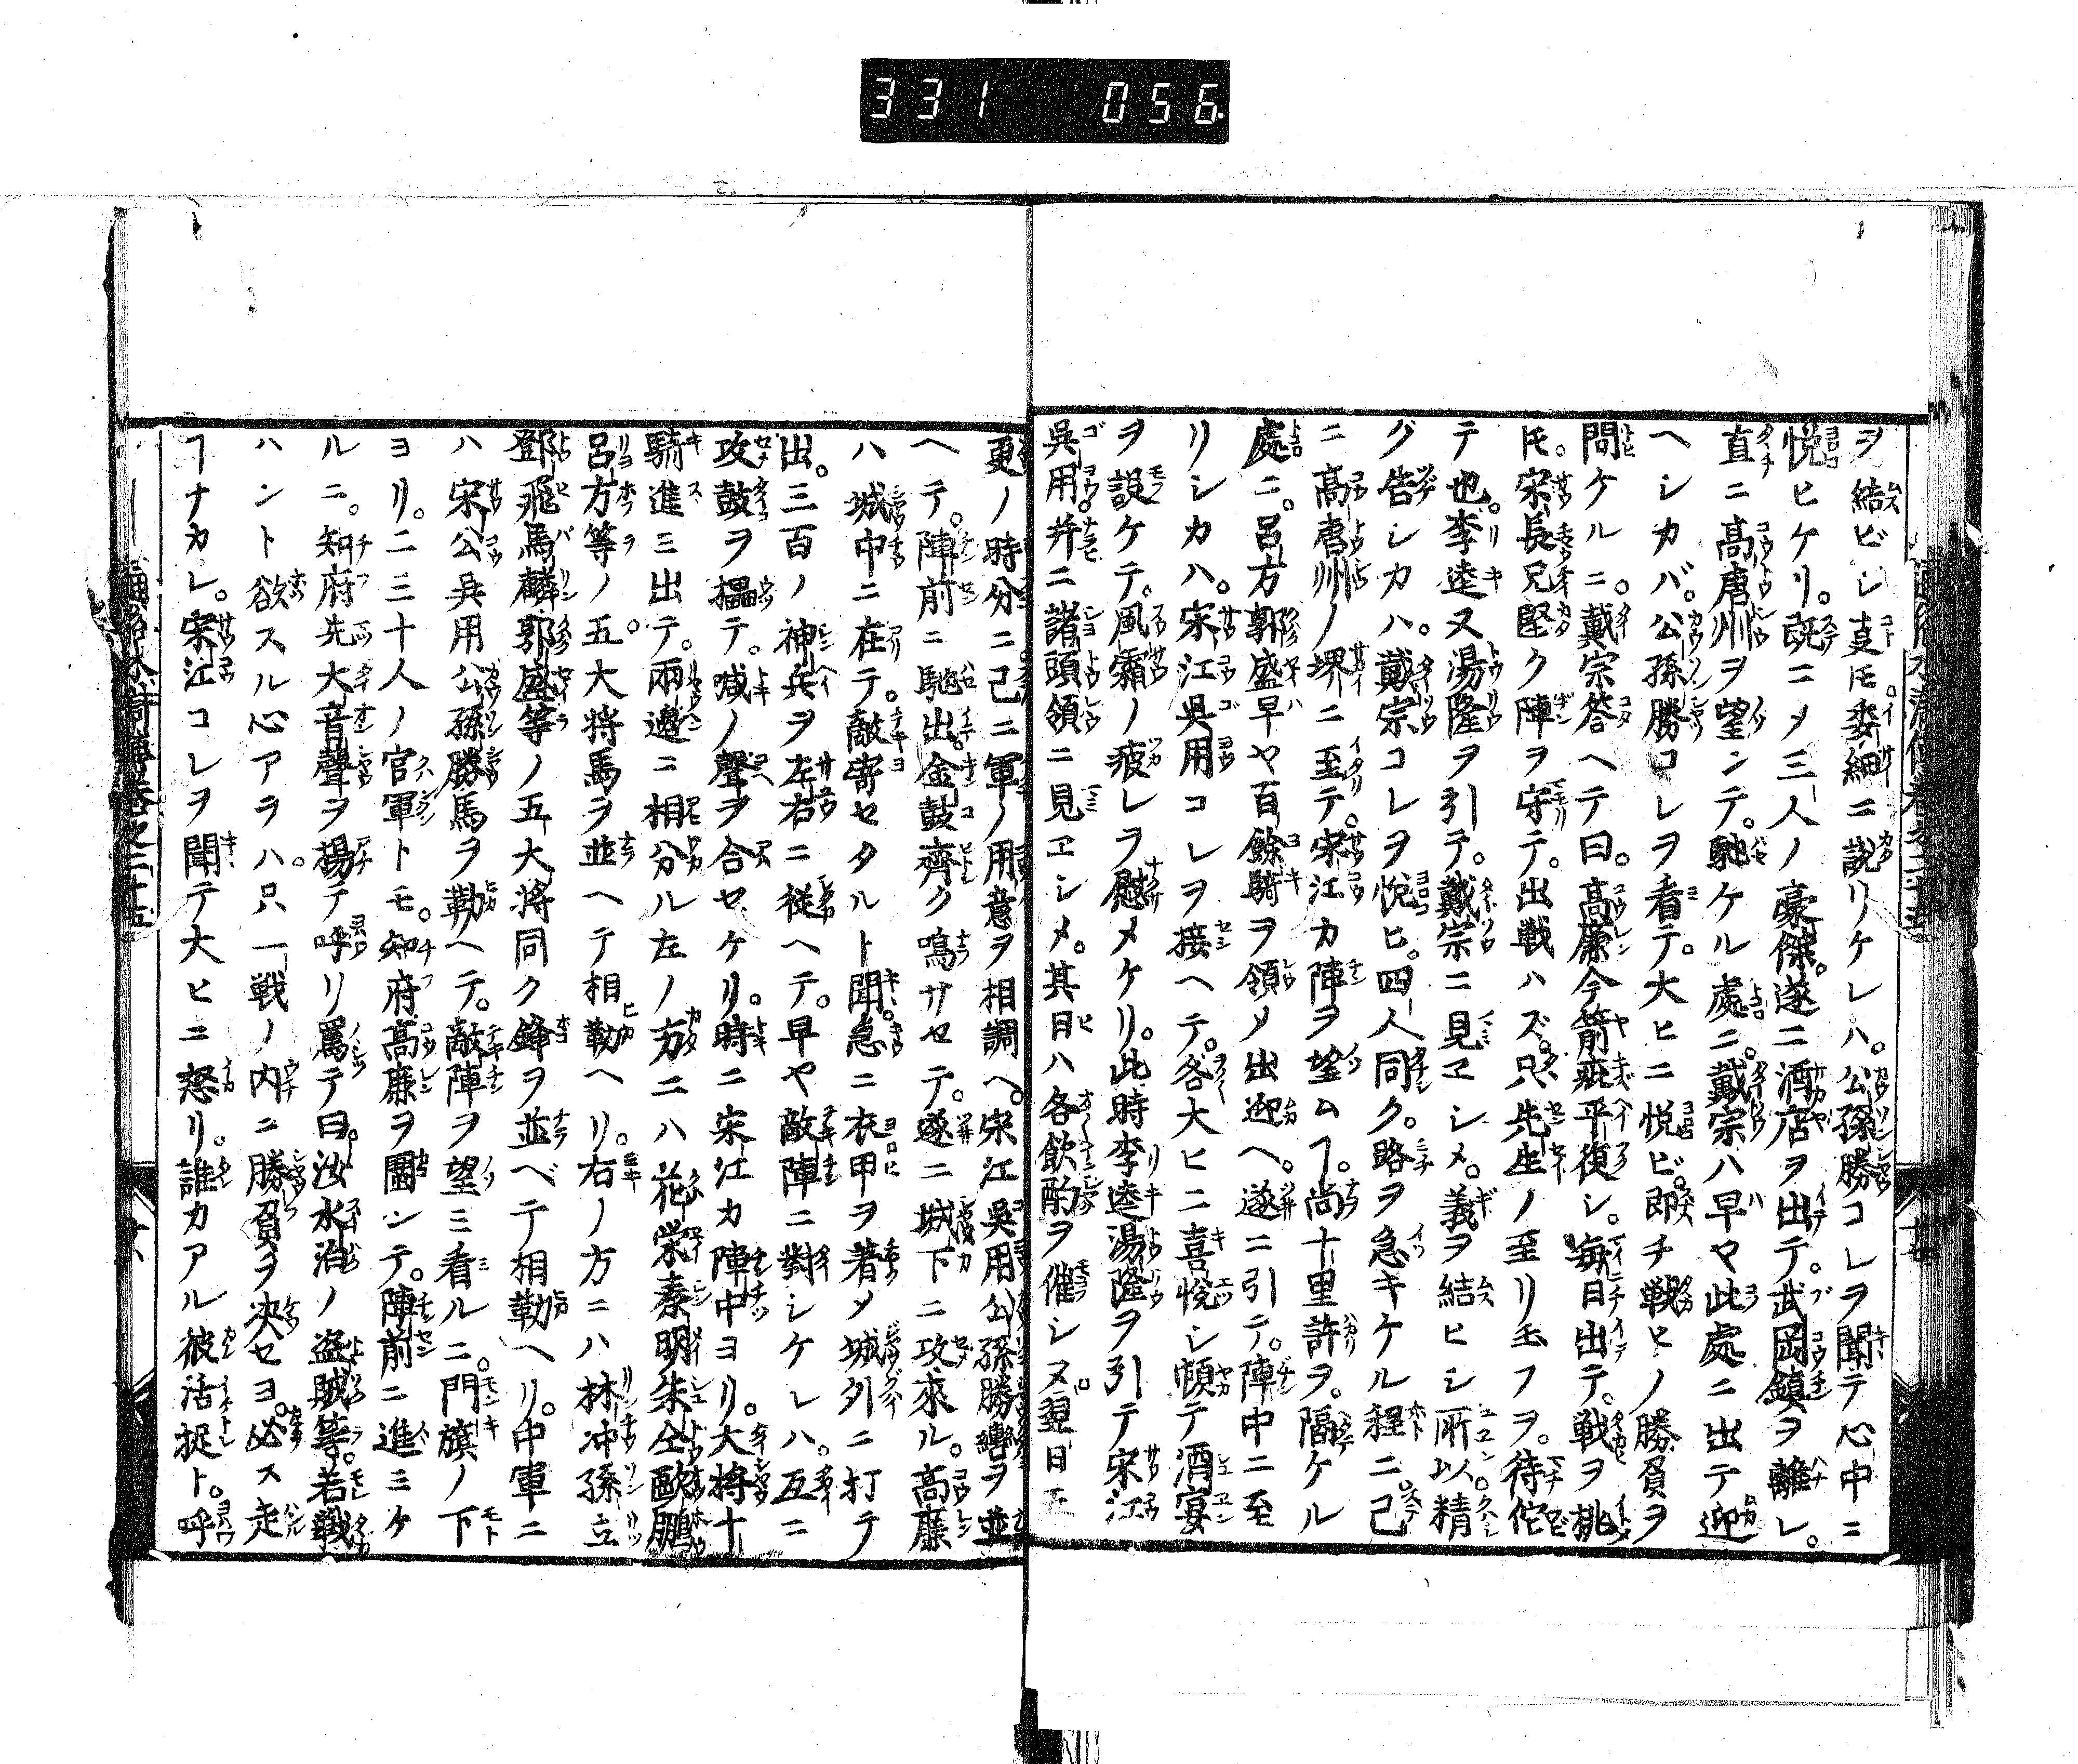 331 056
ヲ結ビシ㕝ヲ委細ニ説リケレハ。公孫勝コレヲ聞テ心中ニ
悦ヒケリ。既ニメ三人ノ豪傑。遂ニ酒店ヲ出テ。武岡鎮ヲ離レ。
直ニ髙唐州ヲ望ンテ。馳ケル處ニ。戴宗ハ早ヤ此處ニ出テ迎
ヘシカバ。公孫勝コレヲ看テ。大ヒニ悦ビ。即チ戦ヒノ勝負ヲ
問ケルニ。戴宗答ヘテ曰。髙廉今箭疵平復シ。毎日出テ。戦ヲ挑
𪜈。宋長兄堅ク陣ヲ守テ。出戦ハズ。只先生ノ至リ玉フヲ。待侘
テ也。李逵又湯隆ヲ引テ。戴宗ニ見ヱシメ。義ヲ結ヒシ所以精
グ告シカハ。戴宗コレヲ悦ヒ。四人同ク。路ヲ急キケル程ニ。己
ニ髙唐州ノ堺ニ至テ。宋江カ陣ヲ望ムヿ。尚十里許ヲ。隔ケル
處ニ。呂方郭盛早ヤ百餘騎ヲ領メ出迎ヘ。遂ニ引テ。陣中ニ至
リシカハ。宋江呉用コレヲ接ヘテ。各大ヒニ喜悦シ頓テ酒宴
ヲ設ケテ。風霜ノ疲レヲ慰メケリ。此時李逵湯隆ヲ引テ宋江
呉用。并ニ諸頭領ニ見ヱシメ。其日ハ各飲酌ヲ催シヌ翌日五
更ノ時分ニ己ニ軍ノ用意ヲ相調ヘ。宋江呉用公孫勝轡ヲ並
ヘテ。陣前ニ馳出。金鼓齊ク鳴サセテ。遂ニ城下ニ攻求ル。髙廉
ハ城中ニ在テ。敵寄セタルト聞。急ニ衣甲ヲ著メ城外ニ打テ
出。三百ノ神兵ヲ左右ニ従ヘテ。早ヤ敵陣ニ對シケレハ。互ニ
攻鼓ヲ擂テ。喊ノ聲ヲ合セケリ。時ニ宋江カ陣中ヨリ。大将十
騎進ミ出テ。兩邊ニ相分ル左ノ方ニハ花榮秦明朱仝歐鵬
呂方等ノ五。大将馬ヲ並ヘテ相勒ヘリ。右ノ方ニハ林冲孫立
鄧飛馬麟郭盛等ノ五大将同ク鋒ヲ並ベテ相勒ヘリ。中軍ニ
ハ宋公呉用公孫勝馬ヲ勒ヘテ。敵陣ヲ望ミ看ルニ。門旗ノ下
ヨリ。二三十人ノ官軍トモ。知府髙廉ヲ圍ンテ。陣前ニ進ミケ
ルニ。知府先大音聲ヲ揚テ呼リ罵テ曰。汝水泊ノ盗賊等。若戦
ハント欲スル心アラハ。只一戦ノ内ニ勝負ヲ决セヨ。必ス走
ヿナカレ。宋江コレヲ聞テ大ヒニ怒リ。誰カアル彼活捉ト。呼